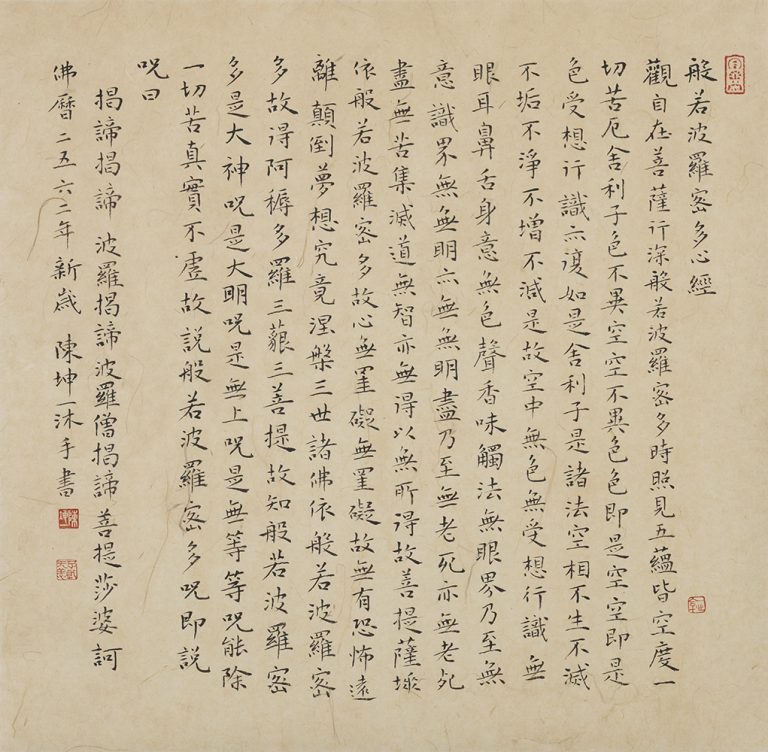 般若波羅密多心經
觀自在菩薩行深般若波羅密多時照見五蘊皆空度一
切苦厄舍利子色不異空空不異色色即是空空即是
色受想行識亦復如是舍利子是諸法空相不生不滅
不垢不淨不增不減是故空中無色無受想行識無
眼耳鼻舌身意無色聲香味觸法無眼界乃至無
意識界無無明亦無無明盡乃至無老死亦無老死
盡無苦集滅道無智亦無得以無所得故菩提薩埵
依般若波羅密多故心無罣礙無罣礙故無有恐怖遠
離顛倒夢想究竟涅槃三世諸佛依般若波羅密
多故得阿耨多羅三藐三菩提故知般若波羅密
多是大神呪是大明呪是無上呪是無等等呪能除
一切苦真實不虛故説般若波羅密多呪即説
呪曰
揭諦揭諦 波羅揭諦波羅僧揭諦菩提莎婆訶
佛曆二五六二年新歲 陳坤一沐手書